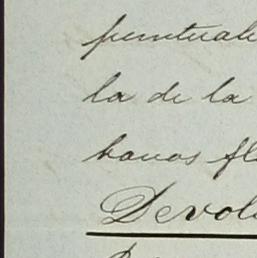 puntuale
la de la
banos fl
Devol